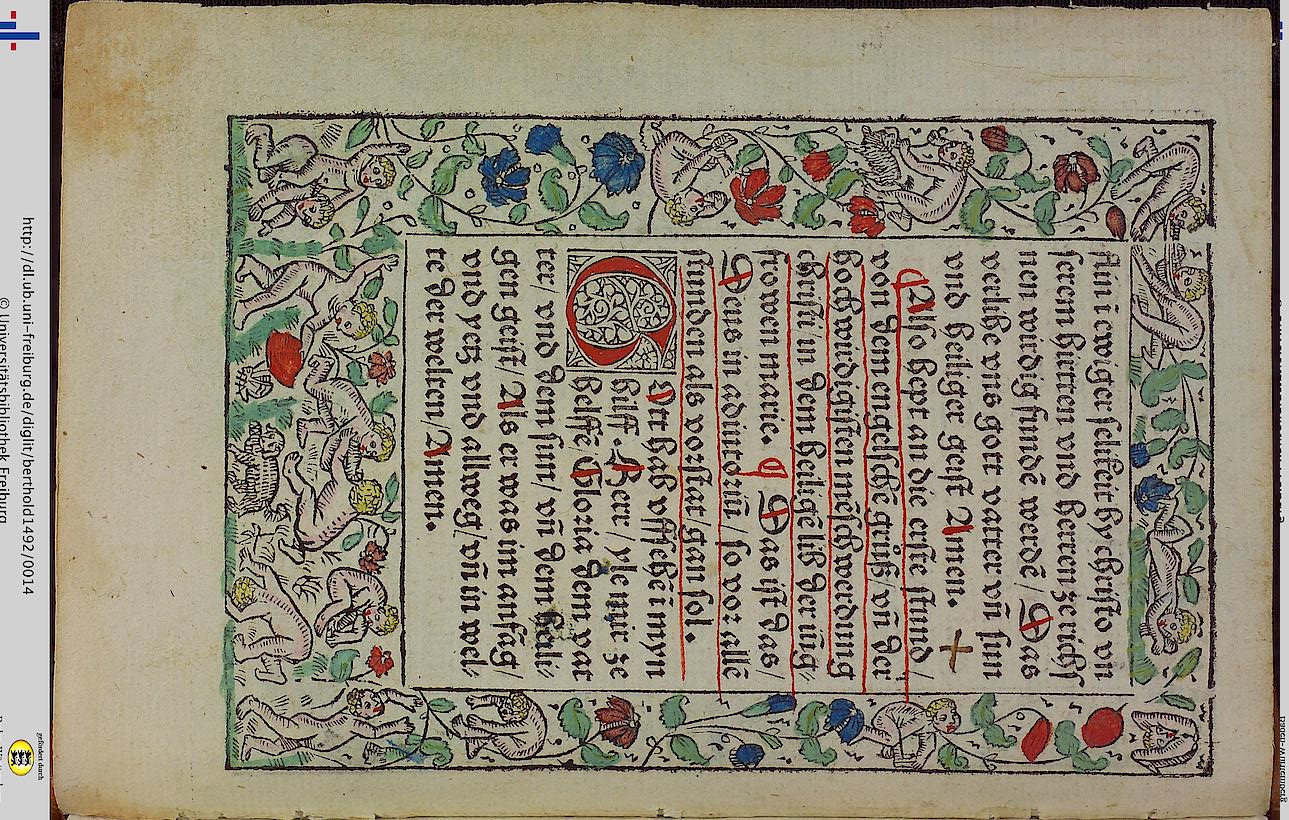 Ain ī ewiger selikeit by christo vn
serem hirtten vnd herren ze richs
nen wirdig fundē werdē / Das
verlihe vns gott vatter vn̄ sun
vnd heiliger geist Amen. +
Also hept an die erste stund /
von dem engelschē grůß / vn̄ der
hochwirdigisten mēschwerdung
christi in dem heiligē lib der iūg
frowen marie. ¶ Das ist das /
Deus in adiutoriū / so vor allē
stunden als vorstat / gan sol.
Ott hab vffsehē ī myn
hilff. Herr / yle mir ze
helffē Gloria dem vat
ter / vnd dem sun / vn̄ dem heili⸗
gen geist / Als er was im anfāg /
vnd yetz vnd allweg / vn̄ in wel⸗
te der welten / Amen.
http://dl.ub.uni-freiburg.de/diglit/berthold1492/0014
© Universitätsbibliothek Freiburg
gefördert durch